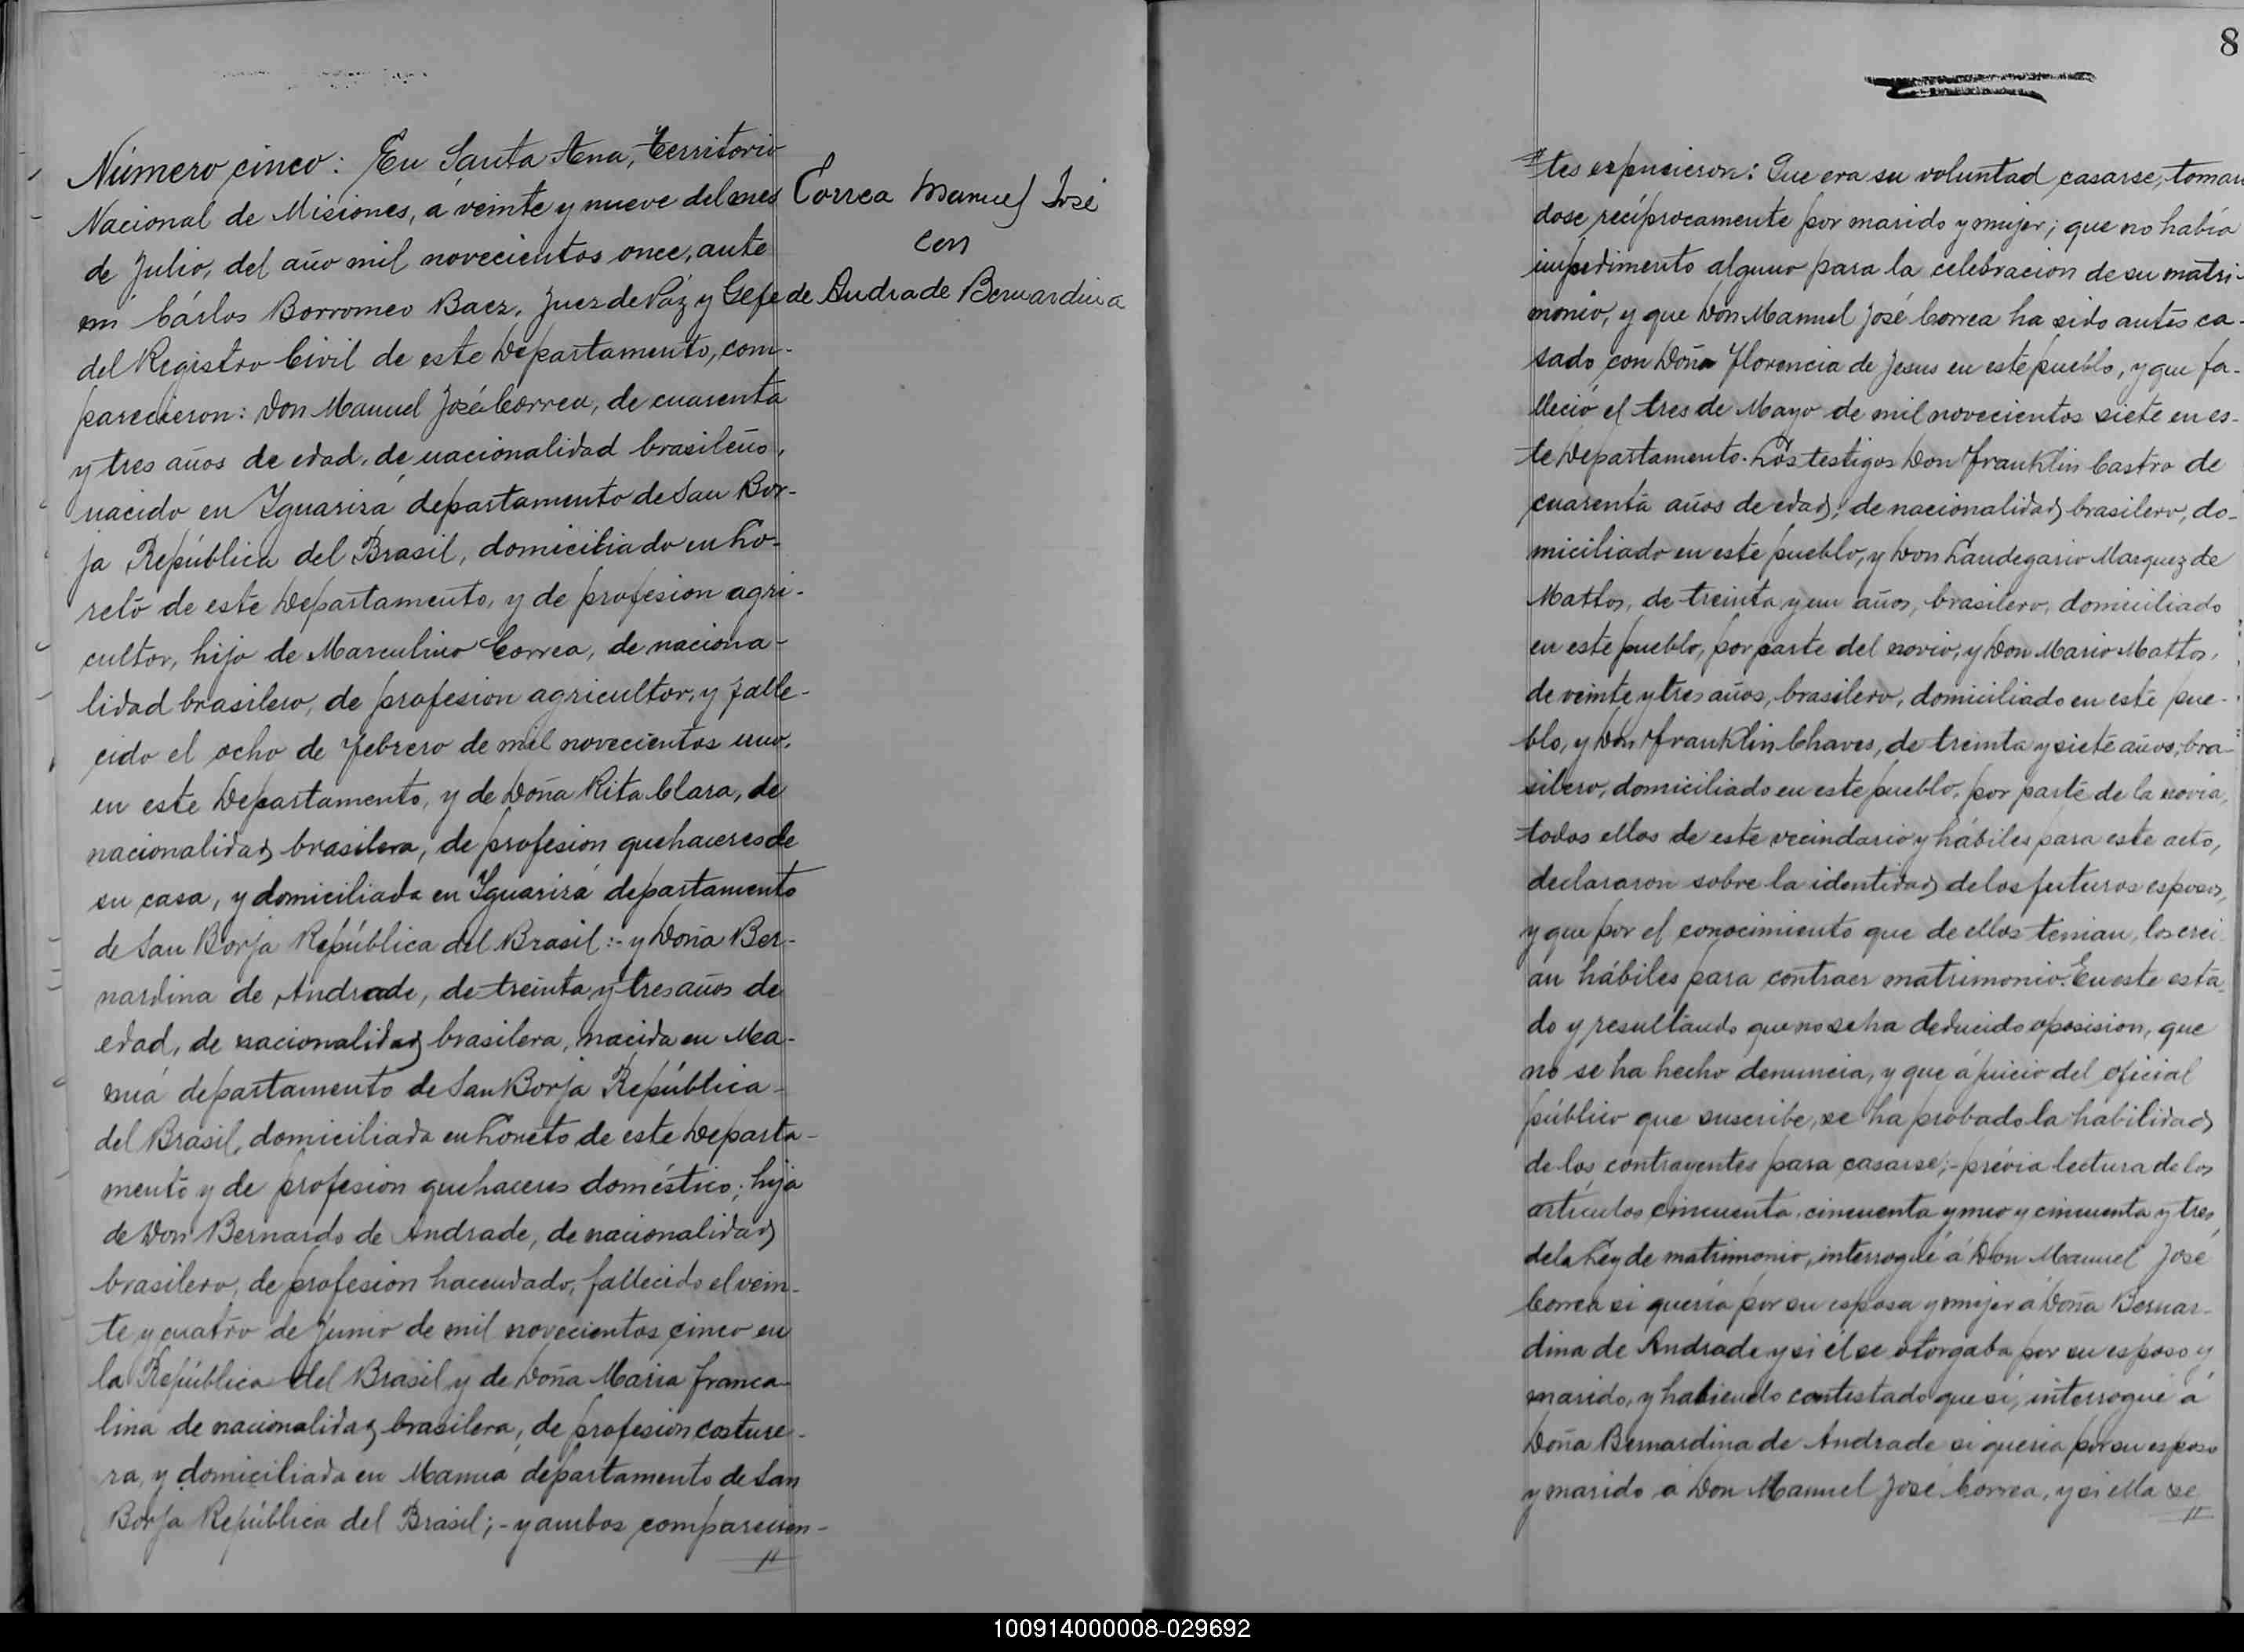 Número cinco: En Santa Ana, territorio
Nacional de Misiones, á veinte y nueve del mes
de Julio, del año mil novecientos once, ante
mi Cárlos Borromeo Baez, Juez de Páz y Gefe
del Registro Civil de este Departamento, com-
parecieron: Don Manuel José Correa, de cuarenta
y tres años de edad, de nacionalidad brasileño,
nacido en Iguarizá departamento de San Bor-
ja República del Brasil, domiciliado en Lo-
reto de este Departamento, y de profesion agri-
cultor, hijo de Marculino Correa, de naciona-
lidad brasilero, de profesion agricultor, y falle-
cido el ocho de febrero de mil novecientos uno,
en este Departamento, y de Doña Rita Clara, de
nacionalidad brasilera, de profesion quehaceres de
su casa, y domiciliada en Iguarizá departamento
de San Borja República del Brasil:- y Doña Ber-
nardina de Andrade, de treinta y tres años de
edad, de nacionalidad brasilera, nacida en Ma-
muá departamento de San Borja República-
del Brasil, domiciliada en Loreto de este Departa-
mento y de profesion quehaceres doméstico; hija
de Don Bernardo de Andrade, de nacionalidad
brasilero, de profesion hacendado, fallecido el vein-
te y cuatro de Junio de mil novecientos cinco en
la República del Brasil y de Doña Maria franca-
lina de nacionalidad brasilera, de profesion costure-
ra, y domiciliada en Mamua departamento de San
Borja República del Brasil;- y ambos comparecien-
//
Correa Manuel José
con
de Andrade Bernardina
8
// tes expusieron: Que era su voluntad casarse, toman
dose recíprocamente por marido y mujer; que no había
impedimento alguno para la celebracion de su matri-
monio, y que Don Manuel José Correa ha sido antes ca-
sado con Doña Florencia de Jesus en este pueblo, y que fa-
lleció el tres de Mayo de mil novecientos siete en es-
te Departamento. Los testigos Don Franklin Castro de
cuarenta años de edad, de nacionalidad brasilero, do-
miciliado en este pueblo, y Don Laudegario Marquez de
Mattos, de treinta y un años, brasilero, domiciliado
en este pueblo, por parte del novio, y Don Mario Mattos,
de veinte y tres años, brasilero, domiciliado en este pue-
blo, y Don Franklin Chaves, de treinta y siete años, bra-
silero, domiciliado en este pueblo, por parte de la novia,
todos ellos de este vecindario y hábiles para este acto,
declararon sobre la identidad de los futuros esposos,
y que por el conocimiento que de ellos tenian, los crei-
an hábiles para contraer matrimonio. En este esta-
do y resultando que no se ha deducido oposision, que
no se ha hecho denuncia, y que á juicio del oficial
público que suscribe, se ha probado la habilidad
de los contrayentes para casarse;- prévia lectura de los
artículos cincuenta, cincuenta y uno y cincuenta y tres,
de la Ley de matrimonio, interrogué á Don Manuel José
Correa si quería por su esposa y mujer á Doña Bernar-
dina de Andrade y si él se otorgaba por su esposo y
marido, y habiendo contestado que sí, interrogué á
Doña Bernardina de Andrade si queria por su esposo
y marido á Don Manuel José Correa, y si ella se
//
100914000008-029692